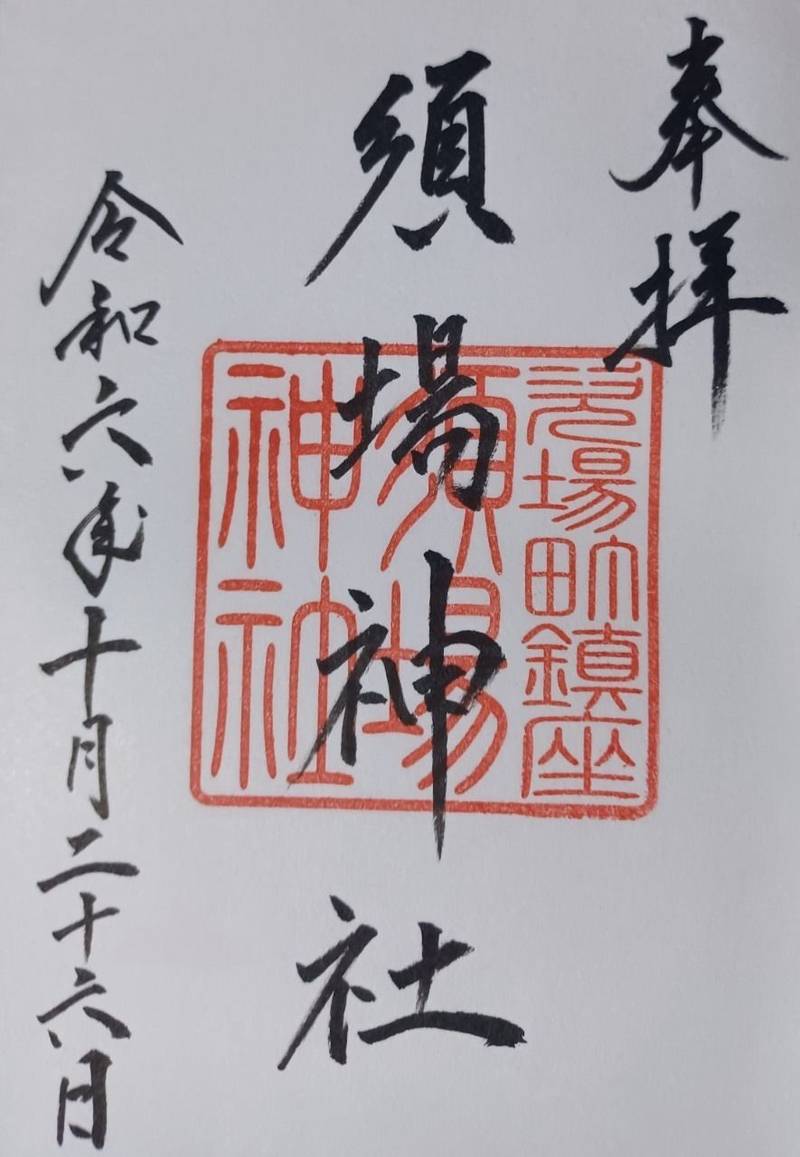 奉拝
須場神社
令和六年十月二十六日
場町鎮座
須場
神社